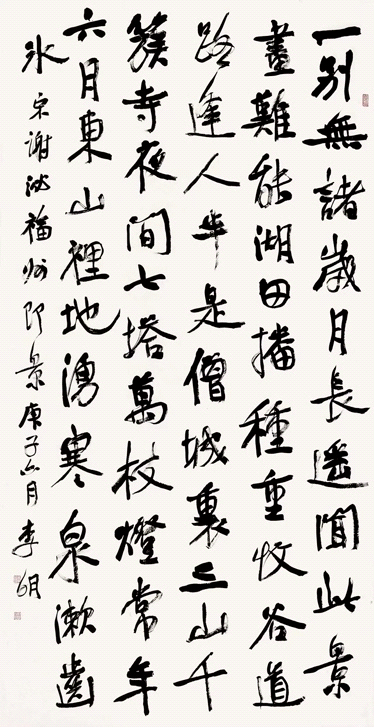 一別無諸歲月長遥聞此景
畫難能湖田播種重收谷道
路逢人半是僧城裏三山千
簇寺夜間七塔萬枝燈常年
六月東山裡地湧寒泉漱齒
冰 宋謝泌福州即景庚子六月李明